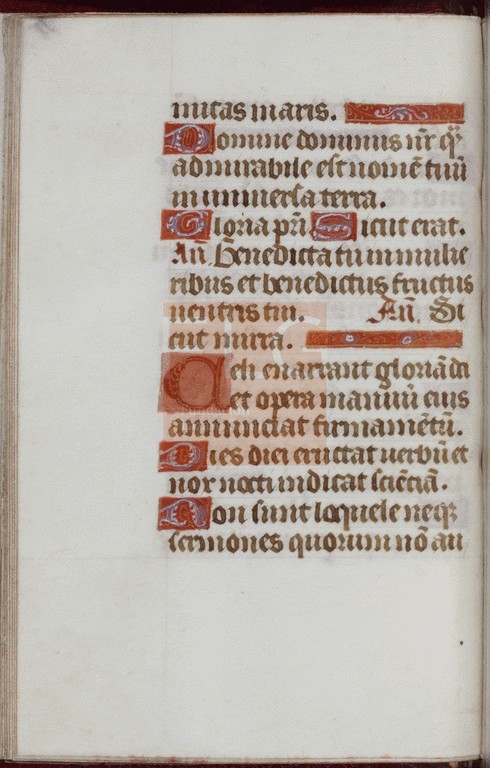 mitas maris.
Domine dominus nr̄ qͣ
admirabile est nomē tuū
in universa terra.
Gloria pr̄i. Sicut erat.
Añ. Benedicta tu in mulie
ribus et benedictus fructus
ventris tui. Añ. Si
cut mirra.
Celi enarrant gloriā dī
et opera manuū eius
annunciat firmamētū.
Dies diei eructat verbū et
nox nocti indicat sciēciā.
Non sunt loquele neqꝫ
sermones quorum nō au